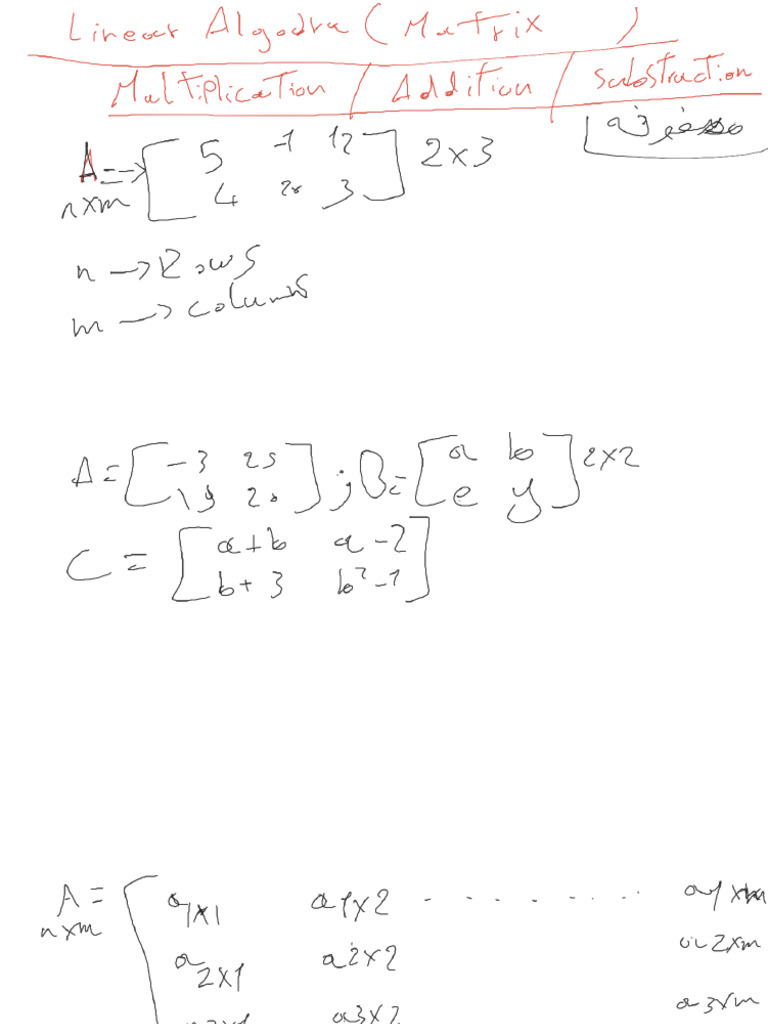 Linear Algedra ( Matrix )
Multiplication / Addition / Substraction
مصفوفة
A = → [ 5 -1 12
n×m 4 2x 3 ] 2×3
n → Rows
m → columns
A = [ -3 25
19 20 ] ; B = [ a b
e y ] 2×2
C = [ a+b a-2
b+3 b²-1 ]
A = [ a 1×1 a1×2 . . . . . . . a1×m
n×m
a 2×1 a2×2 a2×m
a3×2 a3×m